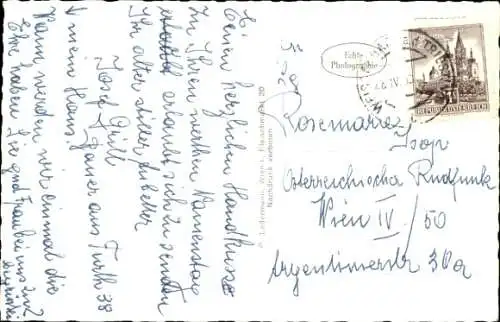 Einen herzlichen Handkuss
zu Ihrem werten Namenstag
erlaubt sich zu senden
Ihr alter stiller Anbeter
Josef
Bauer aus Furth 38
Wann werden wir einmal die
Ehre haben Sie gnä Frau bei uns zu
Echte
Photographie
P. Ledermann, Wien I., Fleischmarkt 20
Nachdruck verboten
REPUBLIK ÖSTERREICH
Rosemarie
Isop
Österreichischer Rudfunk
Wien IV/50
Argentinierstr 30a